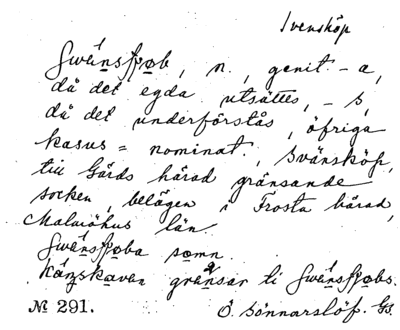 Svensköp
Swänsfpob, n., genit. -a,
då det egda utsättes, -s,
då det underförstås, öfriga
kasus = nominat., Svänsköp,
till Gärds härad gränsande
socken, belägen i Frosta härad,
Malmöhus län.
Swänsfpoba somn.
gränsar ti Swänsfpobs.
№ 291. Ö. Sönnarslöf. Gs.